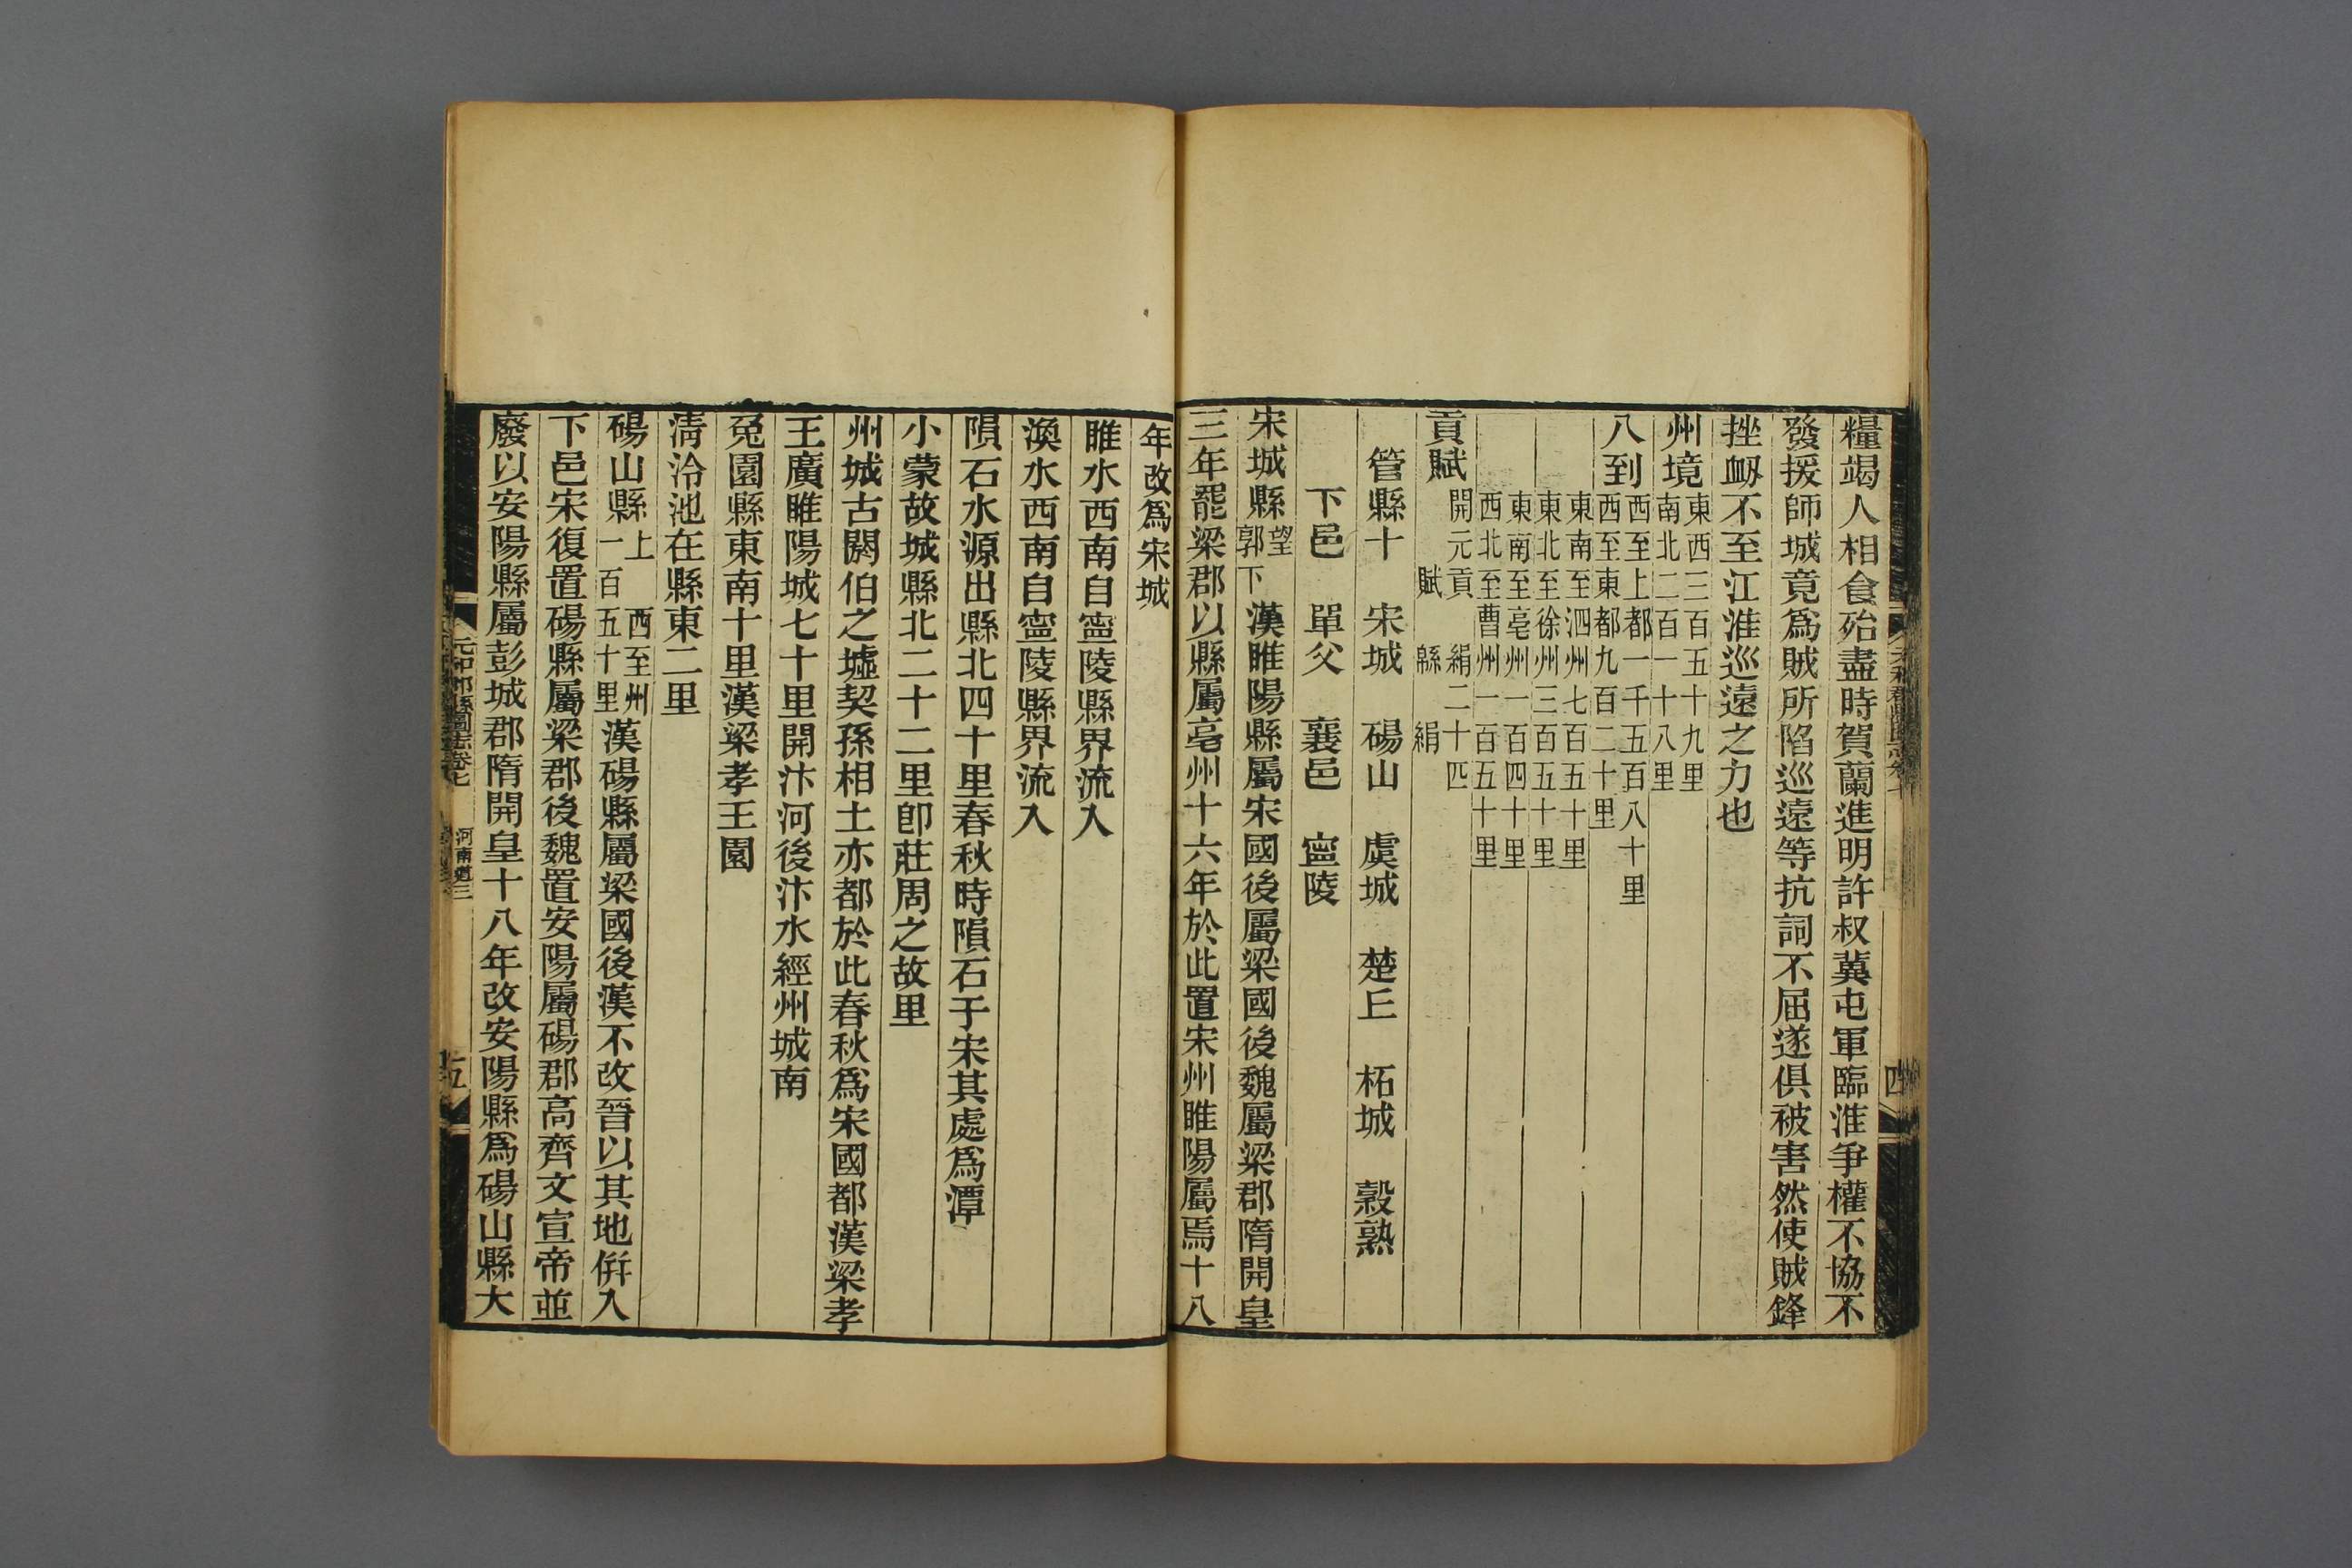 糧竭人相食殆盡時賀蘭進明許叔冀屯軍臨淮爭權不協不
發援師城竟爲賊所陷巡遠等抗詞不屈遂俱被害然使賊鋒
挫衂不至江淮巡遠之力也
州境東西三百五十九里
南北二百一十八里
八到西至上都一千五百八十里
西至東都九百二十里
東南至泗州七百五十里
東北至徐州三百五十里
東南至亳州一百四十里
西北至曹州一百五十里
貢賦開元貢 絹二十匹
賦 緜 絹
管縣十 宋城 碭山 虞城 楚丘 柘城 穀熟
下邑 單父 襄邑 寧陵
宋城縣望
郭下漢睢陽縣屬宋國後屬梁國後魏屬梁郡隋開皇
三年罷梁郡以縣屬亳州十六年於此置宋州睢陽屬焉十八
四
年改爲宋城
睢水西南自寧陵縣界流入
渙水西南自寧陵縣界流入
隕石水源出縣北四十里春秋時隕石于宋其處爲潭
小蒙故城縣北二十二里卽莊周之故里
州城古閼伯之墟契孫相土亦都於此春秋爲宋國都漢梁孝
王廣睢陽城七十里開汴河後汴水經州城南
兔園縣東南十里漢梁孝王園
淸泠池在縣東二里
碭山縣上 西至州
一百五十里漢碭縣屬梁國後漢不改晉以其地倂入
下邑宋復置碭縣屬梁郡後魏置安陽屬碭郡高齊文宣帝並
廢以安陽縣屬彭城郡隋開皇十八年改安陽縣爲碭山縣大
元和郡縣圖志卷七 河南道三 五